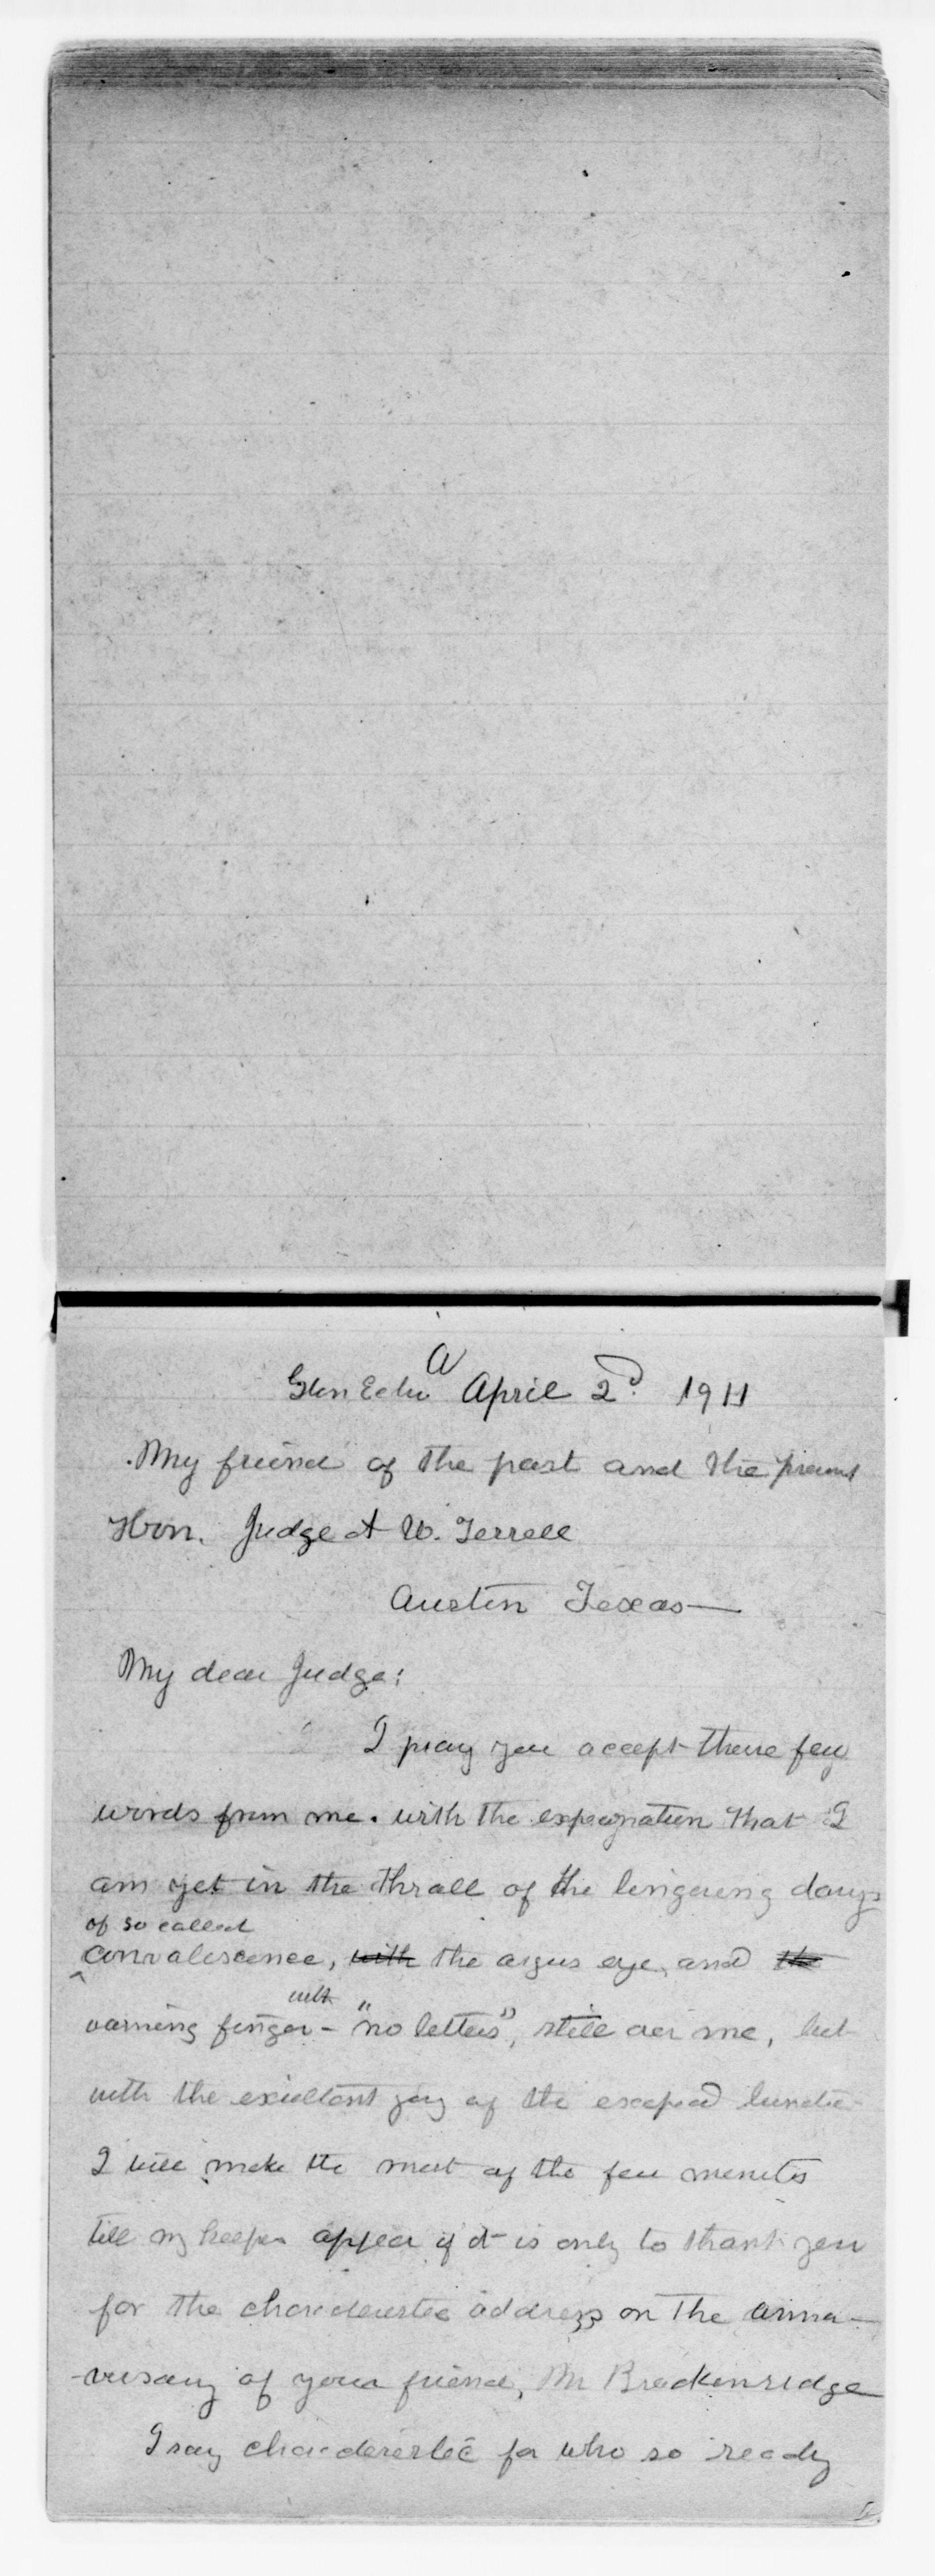 a
Glen Echo April 2d. 1911
My friend of the past and the present
Hon. Judge A W. Terrell
Austin Texas—
My dear Judge:
I pray you accept these few
words from me. with the explanation that I
am yet in the thrall of the lingering days
of so called
convalescence, with the argus eye, and the
with
warning finger - "no letters", still over me, but
with the exultant joy of the escaped lunatic
I will make the most of the few minutes
till my keeper appear if it is only to thank you
for the characteristic address on the anna-
-versary of your friend, Mr Brackenridge
I say characteristic for who so ready